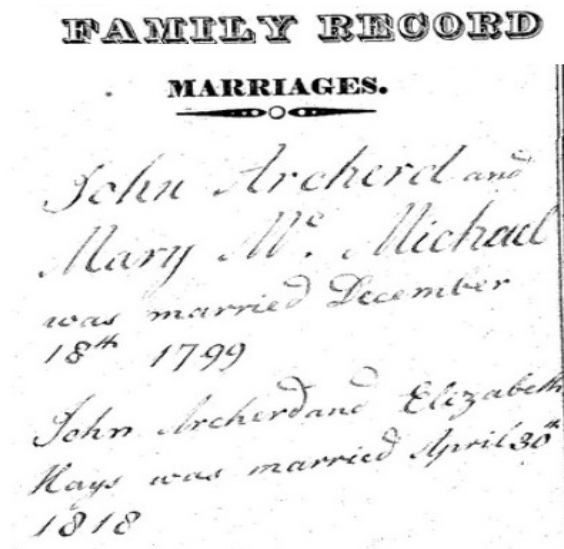 FAMILY RECORD
MARRIAGES.
John Archerd and
Mary Mc. Michael
was married December
18th 1799
John Archerd and Elizabeth
Hays was married April 30th
1818